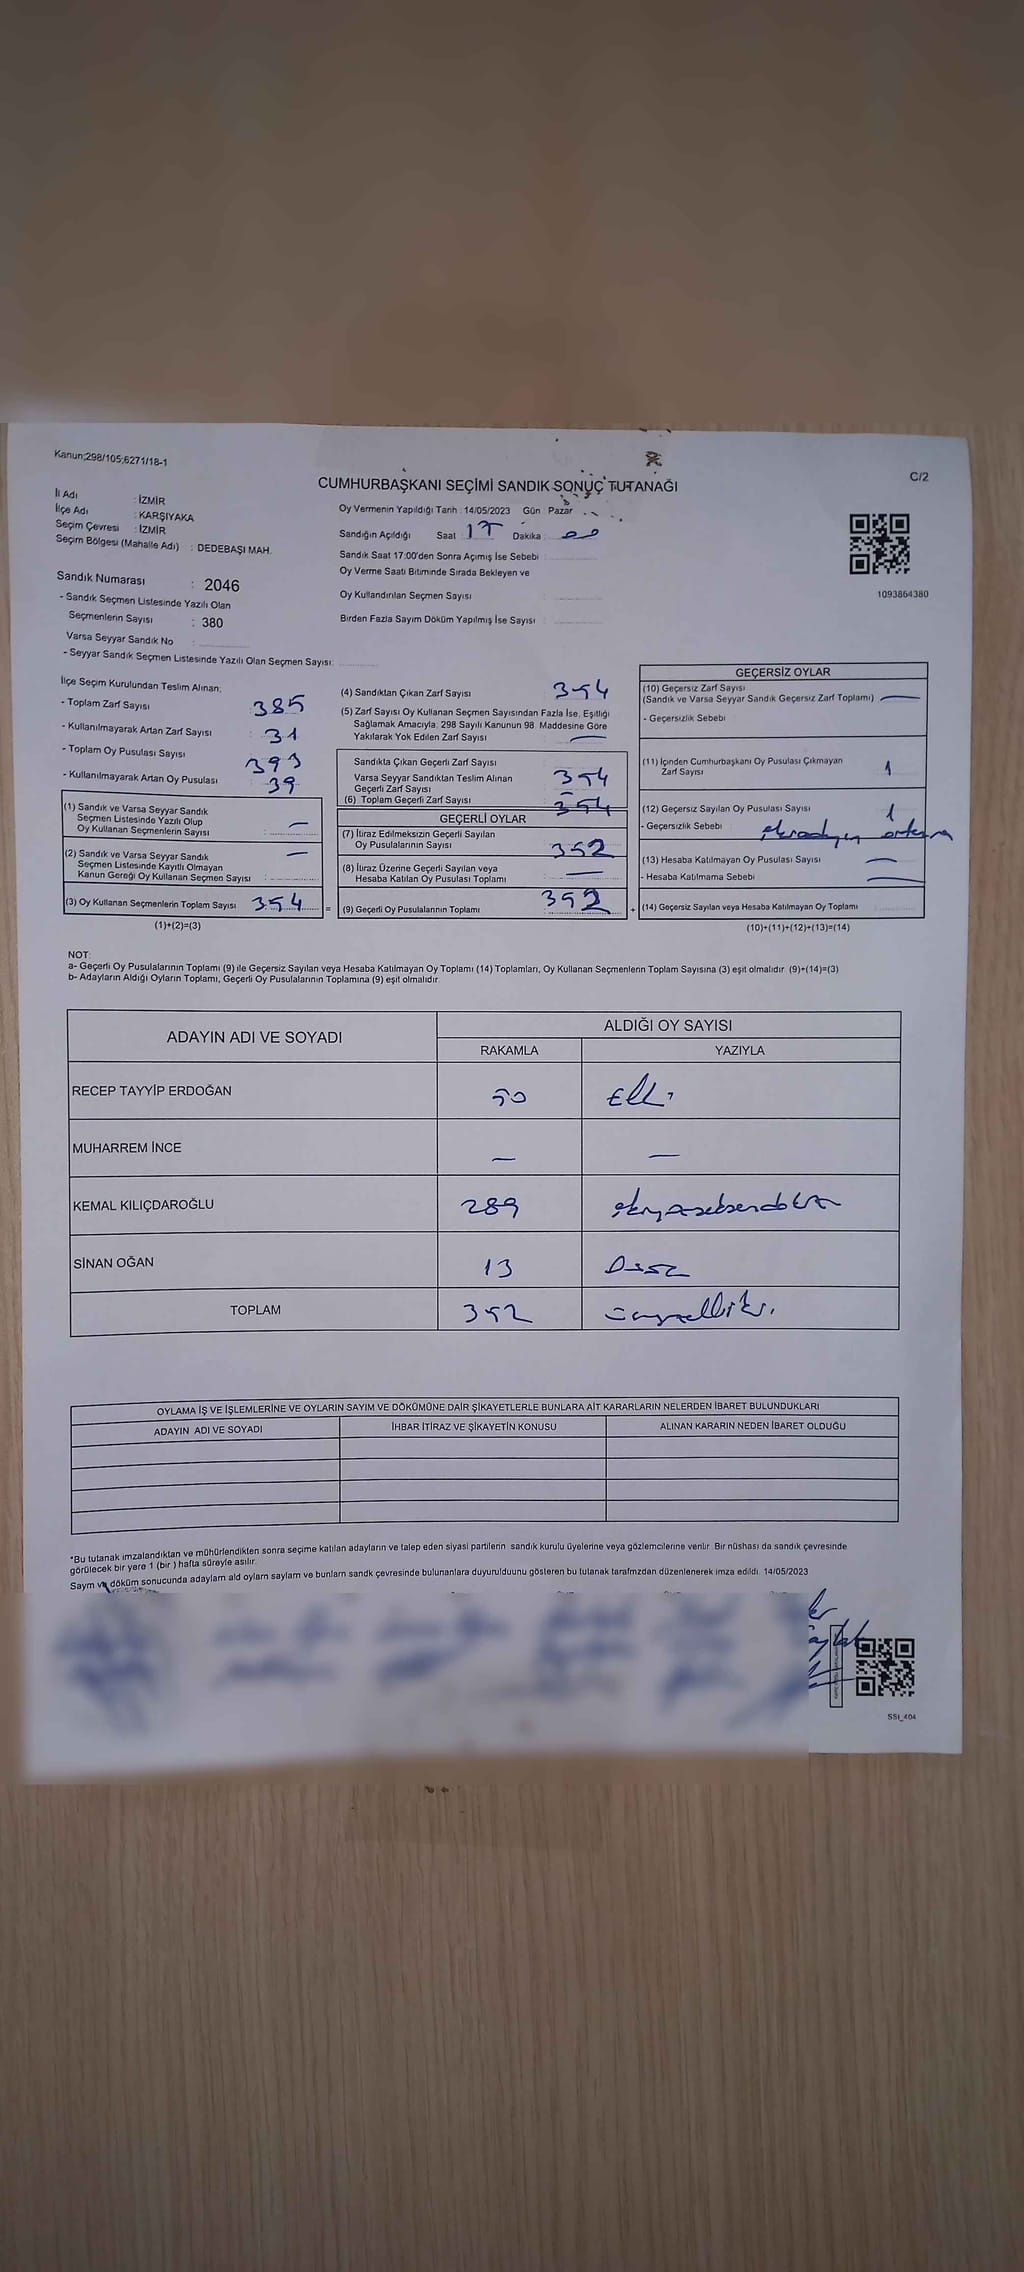 Kanun;298/105;6271/18-1
C/2
CUMHURBAŞKANI SEÇİMİ SANDIK SONUÇ TUTANAĞI
İl Adı : İZMİR
İlçe Adı : KARŞIYAKA
Seçim Çevresi : İZMİR
Seçim Bölgesi (Mahalle Adı) : DEDEBAŞI MAH.
Oy Vermenin Yapıldığı Tarih : 14/05/2023 Gün : Pazar
Sandığın Açıldığı Saat 17 Dakika 00
Sandık Saat 17:00'den Sonra Açımış İse Sebebi :
Oy Verme Saati Bitiminde Sırada Bekleyen ve
Oy Kullandırılan Seçmen Sayısı :
Birden Fazla Sayım Döküm Yapılmış İse Sayısı :
1093864380
Sandık Numarası : 2046
- Sandık Seçmen Listesinde Yazılı Olan
Seçmenlerin Sayısı : 380
Varsa Seyyar Sandık No :
- Seyyar Sandık Seçmen Listesinde Yazılı Olan Seçmen Sayısı:
İlçe Seçim Kurulundan Teslim Alınan;
- Toplam Zarf Sayısı : 385
- Kullanılmayarak Artan Zarf Sayısı : 31
- Toplam Oy Pusulası Sayısı : 393
- Kullanılmayarak Artan Oy Pusulası : 39
(1) Sandık ve Varsa Seyyar Sandık
Seçmen Listesinde Yazılı Olup
Oy Kullanan Seçmenlerin Sayısı : —
(2) Sandık ve Varsa Seyyar Sandık
Seçmen Listesinde Kayıtlı Olmayan
Kanun Gereği Oy Kullanan Seçmen Sayısı : —
(3) Oy Kullanan Seçmenlerin Toplam Sayısı 354
(1)+(2)=(3)
=
(4) Sandıktan Çıkan Zarf Sayısı 354
(5) Zarf Sayısı Oy Kullanan Seçmen Sayısından Fazla İse, Eşitliği
Sağlamak Amacıyla; 298 Sayılı Kanunun 98. Maddesine Göre
Yakılarak Yok Edilen Zarf Sayısı : —
Sandıkta Çıkan Geçerli Zarf Sayısı 354
Varsa Seyyar Sandıktan Teslim Alınan
Geçerli Zarf Sayısı : —
(6) Toplam Geçerli Zarf Sayısı 354
GEÇERLİ OYLAR
(7) İtiraz Edilmeksizin Geçerli Sayılan
Oy Pusulalarının Sayısı 352
(8) İtiraz Üzerine Geçerli Sayılan veya
Hesaba Katılan Oy Pusulası Toplamı : —
(9) Geçerli Oy Pusulalarının Toplamı 352
+
GEÇERSİZ OYLAR
(10) Geçersiz Zarf Sayısı
(Sandık ve Varsa Seyyar Sandık Geçersiz Zarf Toplamı) : —
- Geçersizlik Sebebi
(11) İçinden Cumhurbaşkanı Oy Pusulası Çıkmayan
Zarf Sayısı 1
(12) Geçersiz Sayılan Oy Pusulası Sayısı 1
- Geçersizlik Sebebi
(13) Hesaba Katılmayan Oy Pusulası Sayısı —
- Hesaba Katılmama Sebebi —
(14) Geçersiz Sayılan veya Hesaba Katılmayan Oy Toplamı
(10)+(11)+(12)+(13)=(14)
NOT:
a- Geçerli Oy Pusulalarının Toplamı (9) ile Geçersiz Sayılan veya Hesaba Katılmayan Oy Toplamı (14) Toplamları, Oy Kullanan Seçmenlerin Toplam Sayısına (3) eşit olmalıdır (9)+(14)=(3)
b- Adayların Aldığı Oyların Toplamı, Geçerli Oy Pusulalarının Toplamına (9) eşit olmalıdır.
ADAYIN ADI VE SOYADI ALDIĞI OY SAYISI
RAKAMLA YAZIYLA
RECEP TAYYİP ERDOĞAN 50 Elli
MUHARREM İNCE — —
KEMAL KILIÇDAROĞLU 289 ikiyüzseksendokuz
SİNAN OĞAN 13 Onüç
TOPLAM 352 üçyüzelliiki
OYLAMA İŞ VE İŞLEMLERİNE VE OYLARIN SAYIM VE DÖKÜMÜNE DAİR ŞİKAYETLERLE BUNLARA AİT KARARLARIN NELERDEN İBARET BULUNDUKLARI
ADAYIN ADI VE SOYADI İHBAR İTİRAZ VE ŞİKAYETİN KONUSU ALINAN KARARIN NEDEN İBARET OLDUĞU
*Bu tutanak imzalandıktan ve mühürlendikten sonra seçime katılan adayların ve talep eden siyasi partilerin sandık kurulu üyelerine veya gözlemcilerine verilir. Bir nüshası da sandık çevresinde
görülecek bir yere 1 (bir ) hafta süreyle asılır.
Saym ve döküm sonucunda adaylam ald oylam saylam ve bunlam sandk çevresinde bulunanlara duyurulduunu gösteren bu tutanak tarafmzdan düzenlenerek imza edildi. 14/05/2023
SSI_404